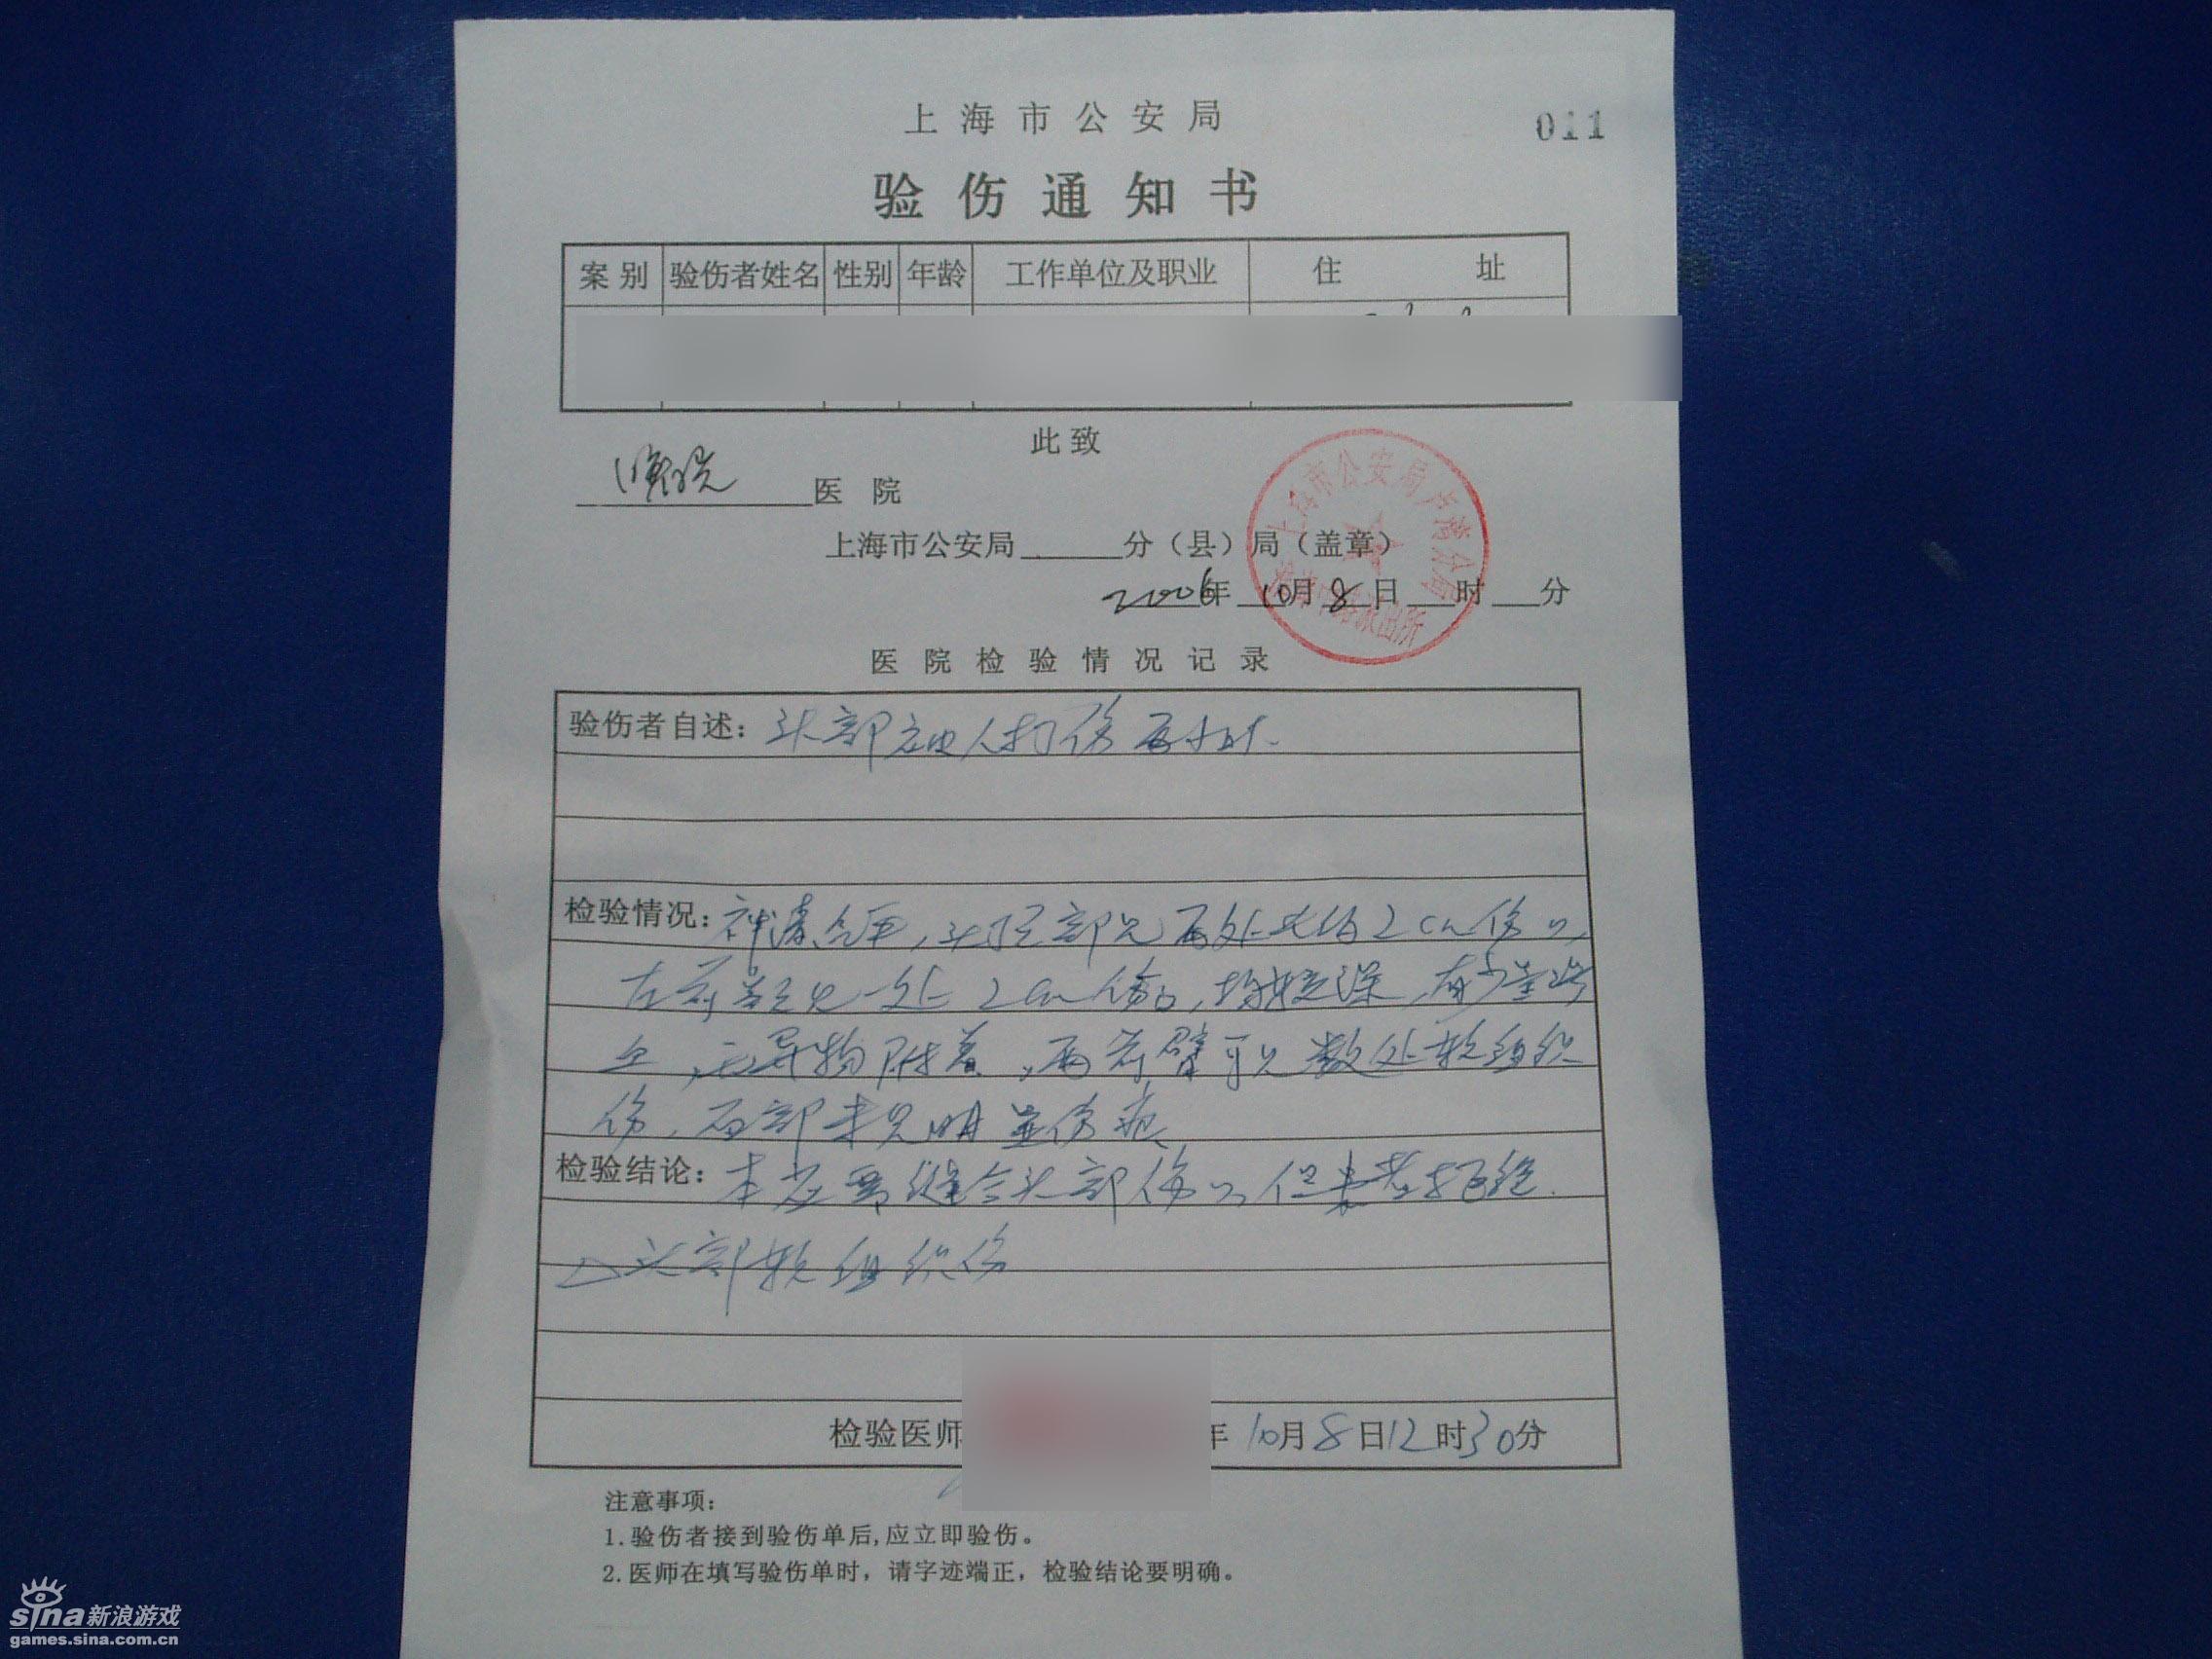 上海市公安局
011
验伤通知书
案别 验伤者姓名 性别 年龄 工作单位及职业 住址
此致
医院
上海市公安局 分（县）局（盖章）
上海市公安局卢湾分局
派出所
2006年10月8日 时 分
医院检验情况记录
验伤者自述：头部被他人打伤两小时.
检验情况：神清合作，头顶部见两处长约2cm伤口，
左前额见一处2cm伤口，均较深，有少量出
血，无异物附着，两前臂可见数处软组织
伤，面部未见明显伤痕
检验结论：本应需缝合头部伤口，但患者拒绝.
△头部软组织伤
检验医师 年10月8日12时30分
注意事项：
1.验伤者接到验伤单后,应立即验伤。
2.医师在填写验伤单时，请字迹端正，检验结论要明确。
sina新浪游戏
games.sina.com.cn